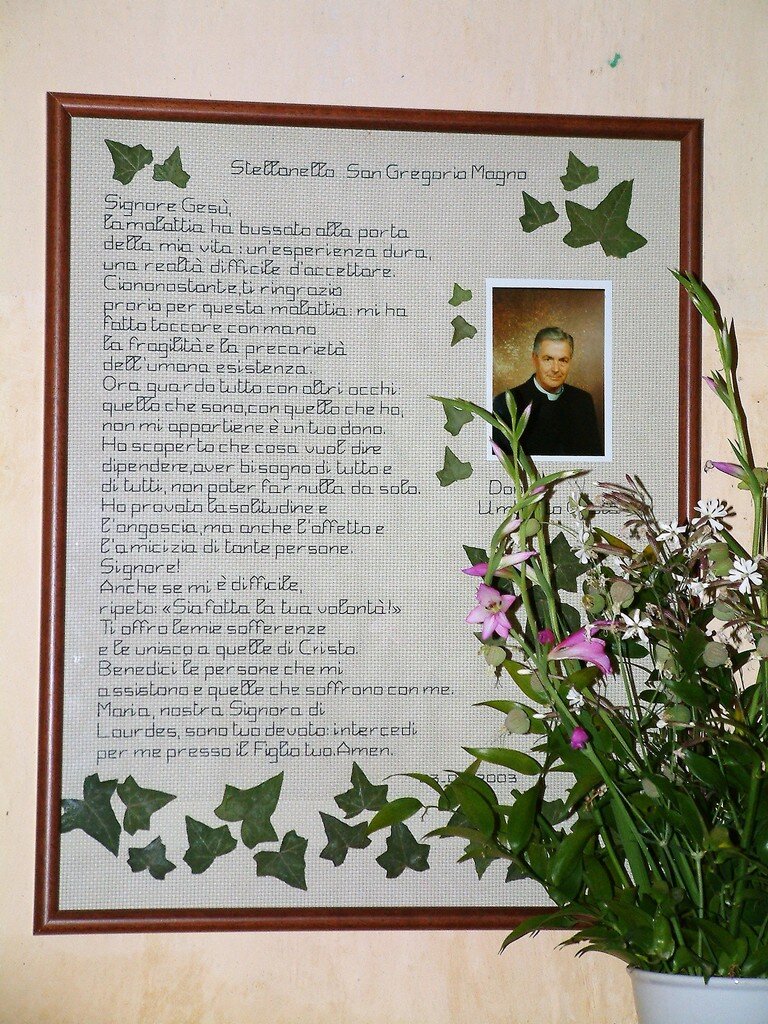 Stellanello San Gregorio Magno
Signore Gesù,
la malattia ha bussato alla porta
della mia vita : un'esperienza dura,
una realtà difficile d'accettare.
Ciononostante, ti ringrazio
prorio per questa malattia: mi ha
fatto toccare con mano
la fragilità e la precarietà
dell'umana esistenza.
Ora guardo tutto con altri occhi:
quello che sono, con quello che ho,
non mi appartiene è un tuo dono.
Ho scoperto che cosa vuol dire
dipendere, aver bisogno di tutto e
di tutti, non poter far nulla da solo.
Ho provato la solitudine e
l'angoscia, ma anche l'affetto e
l'amicizia di tante persone.
Signore!
Anche se mi è difficile,
ripeto: «Sia fatta la tua volontà!»
Ti offro le mie sofferenze
e le unisco a quelle di Cristo.
Benedici le persone che mi
assistono e quelle che soffrono con me.
Maria, nostra Signora di
Lourdes, sono tuo devoto: intercedi
per me presso il Figlio tuo. Amen.
Don
2003